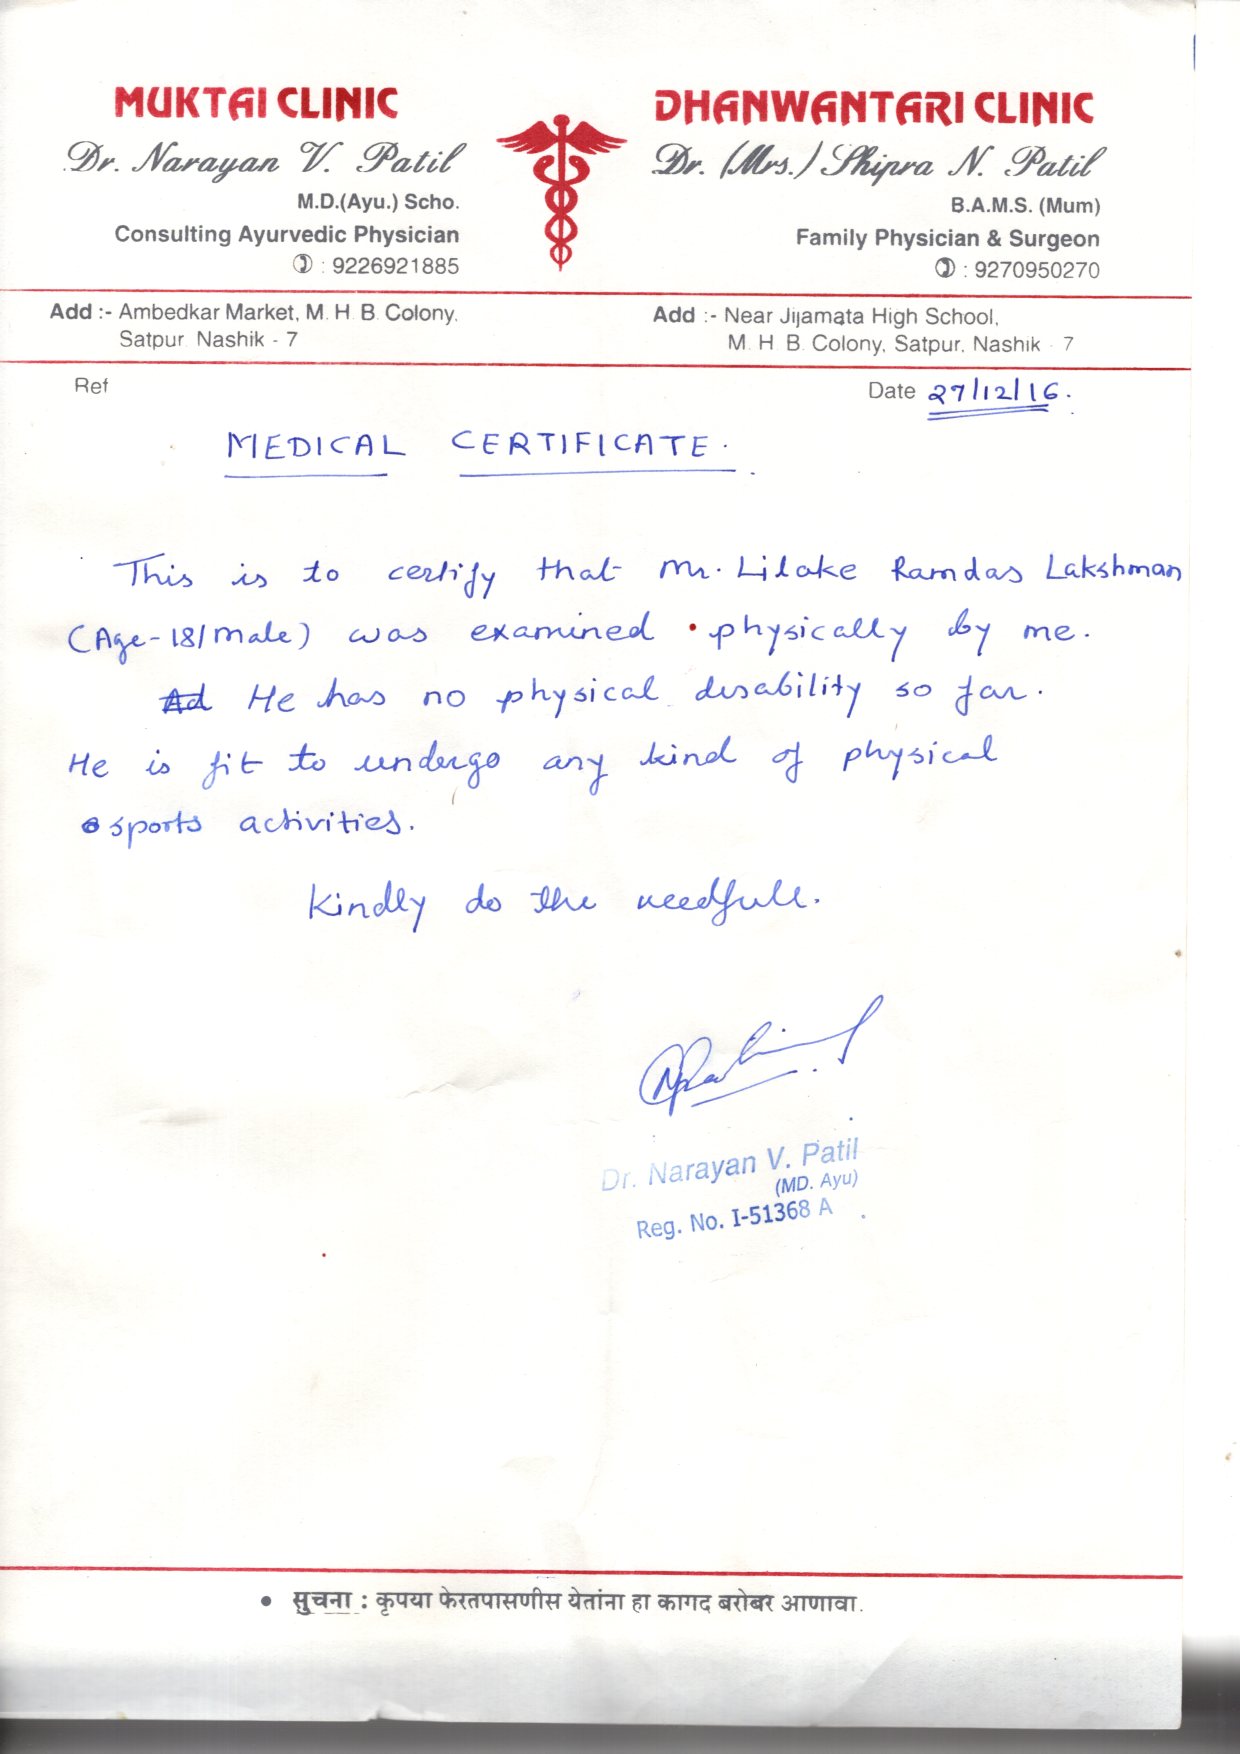 MUKTAI CLINIC
Dr. Narayan V. Patil
M.D.(Ayu.) Scho.
Consulting Ayurvedic Physician
: 9226921885
DHANWANTARI CLINIC
Dr. (Mrs.) Shipra N. Patil
B.A.M.S. (Mum)
Family Physician & Surgeon
: 9270950270
Add :- Ambedkar Market, M. H. B. Colony,
Satpur Nashik - 7
Add :- Near Jijamata High School,
M. H. B. Colony, Satpur, Nashik - 7
Ref
Date 27/12/16.
MEDICAL CERTIFICATE.
This is to certify that Mr. Lilake Ramdas Lakshman
(Age-18/male) was examined physically by me.
Ad He has no physical disability so far.
He is fit to undergo any kind of physical
sports activities.
Kindly do the needfull.
Dr. Narayan V. Patil
(MD. Ayu)
Reg. No. I-51368 A
• सुचना : कृपया फेरतपासणीस येतांना हा कागद बरोबर आणावा.